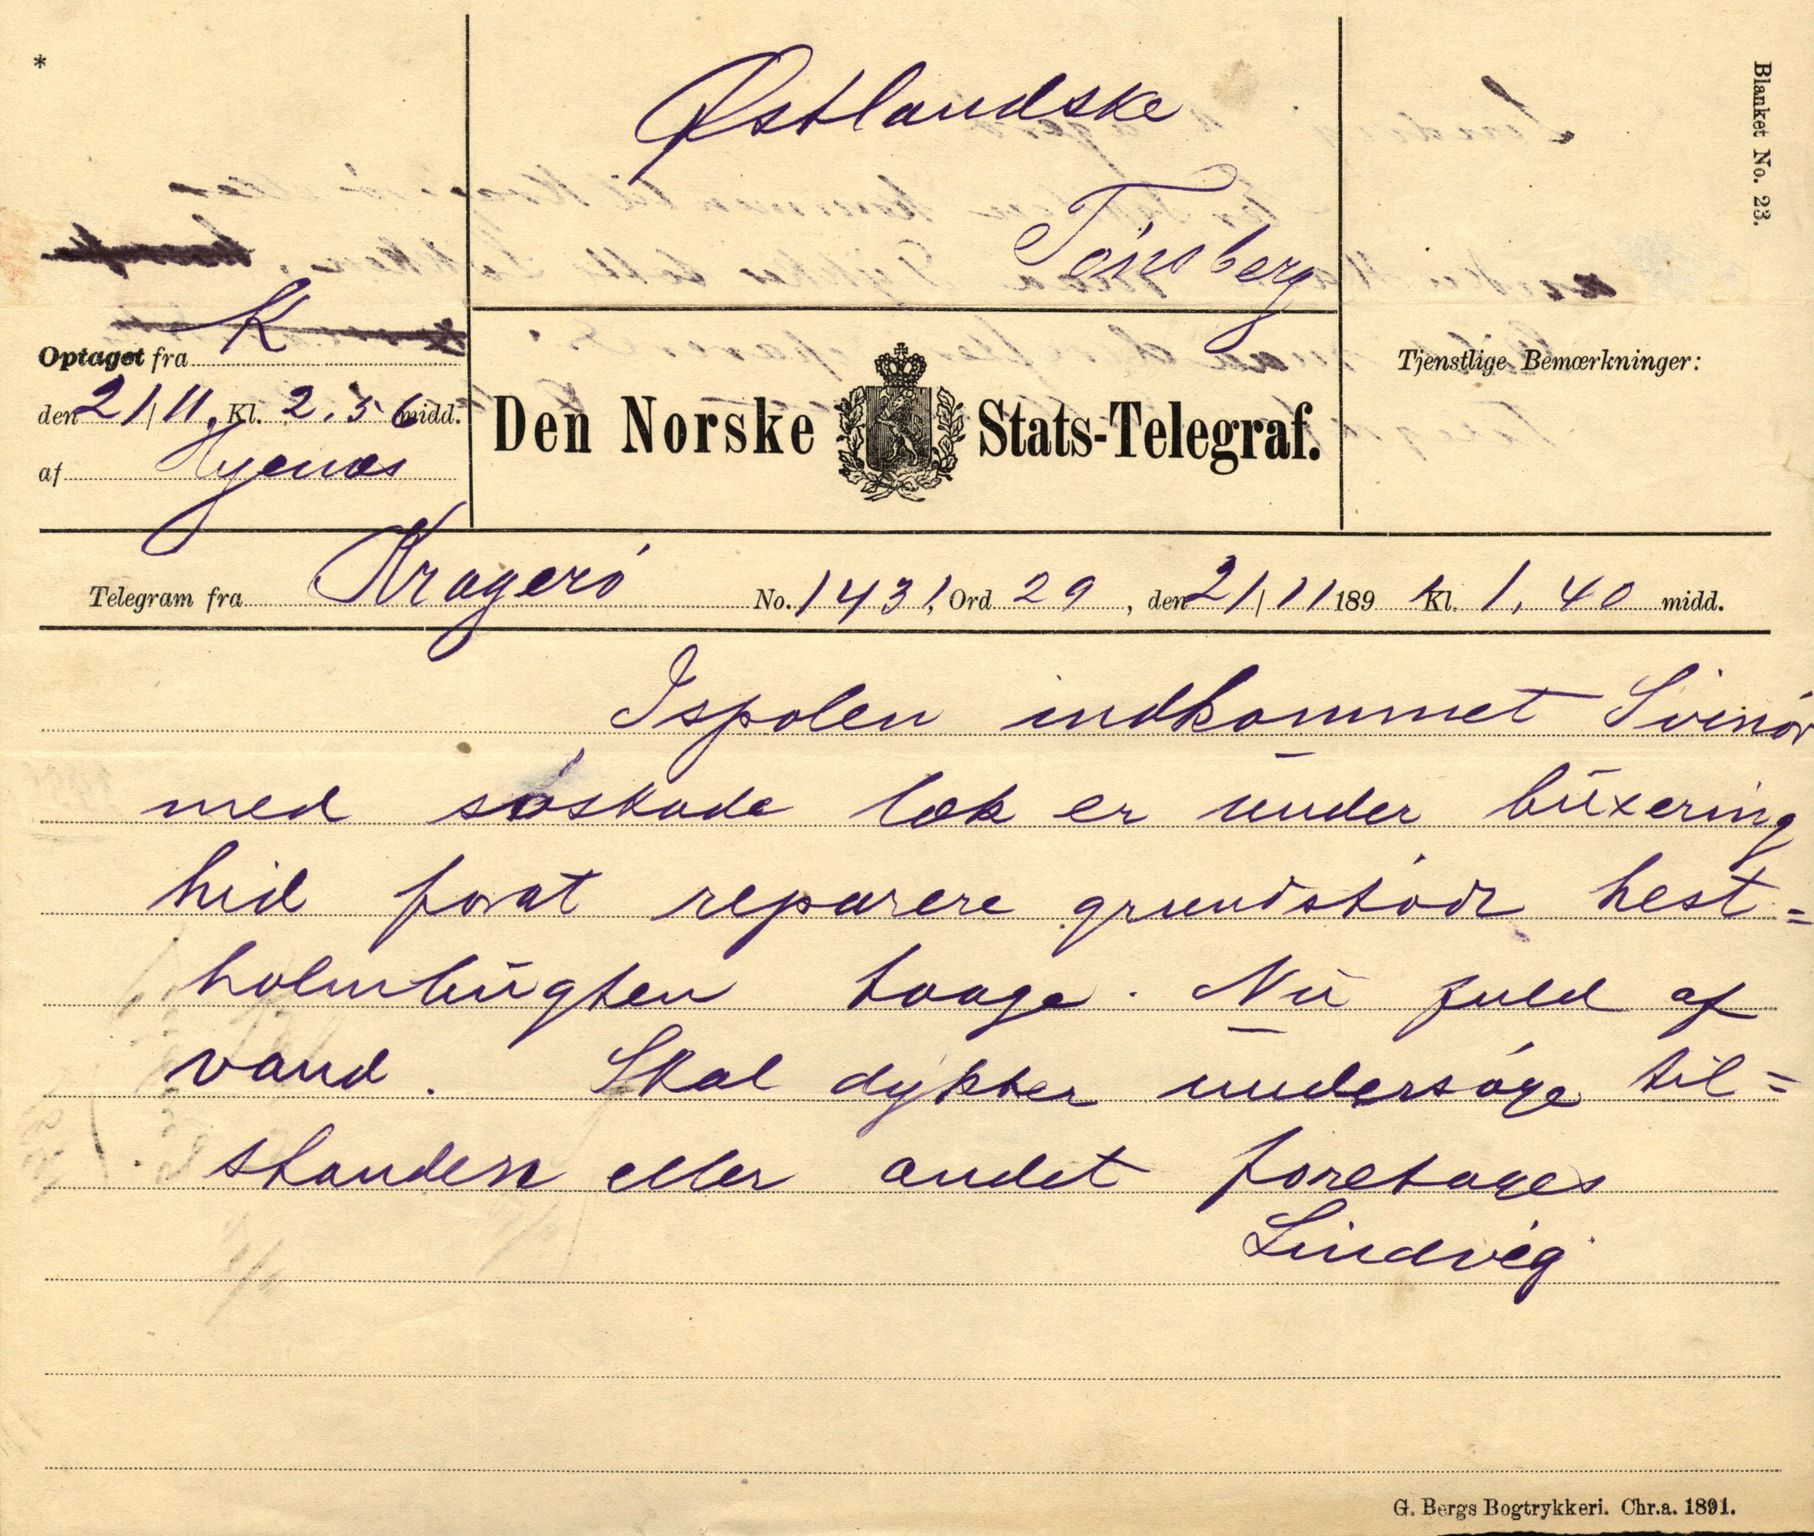 *
Østlandske
Tönsberg
Blanket No. 23.
Optaget fra K
den 21/11, Kl. 2.56 midd.
af
Den Norske Stats-Telegraf.
Tjenstlige Bemærkninger:
Telegram fra Kragerö No. 1431, Ord 29, den 21/11 189 Kl. 1,40 midd.
Ispolen indkommet Svinör
med søskade læk er under buxering
hid forat reparere grundstödt hest=
holmbugten taage. Nu fuld af
vand. Skal dykker undersöge til=
standen eller andet foretages
Lindvig
G. Bergs Bogtrykkeri. Chr.a. 1891.